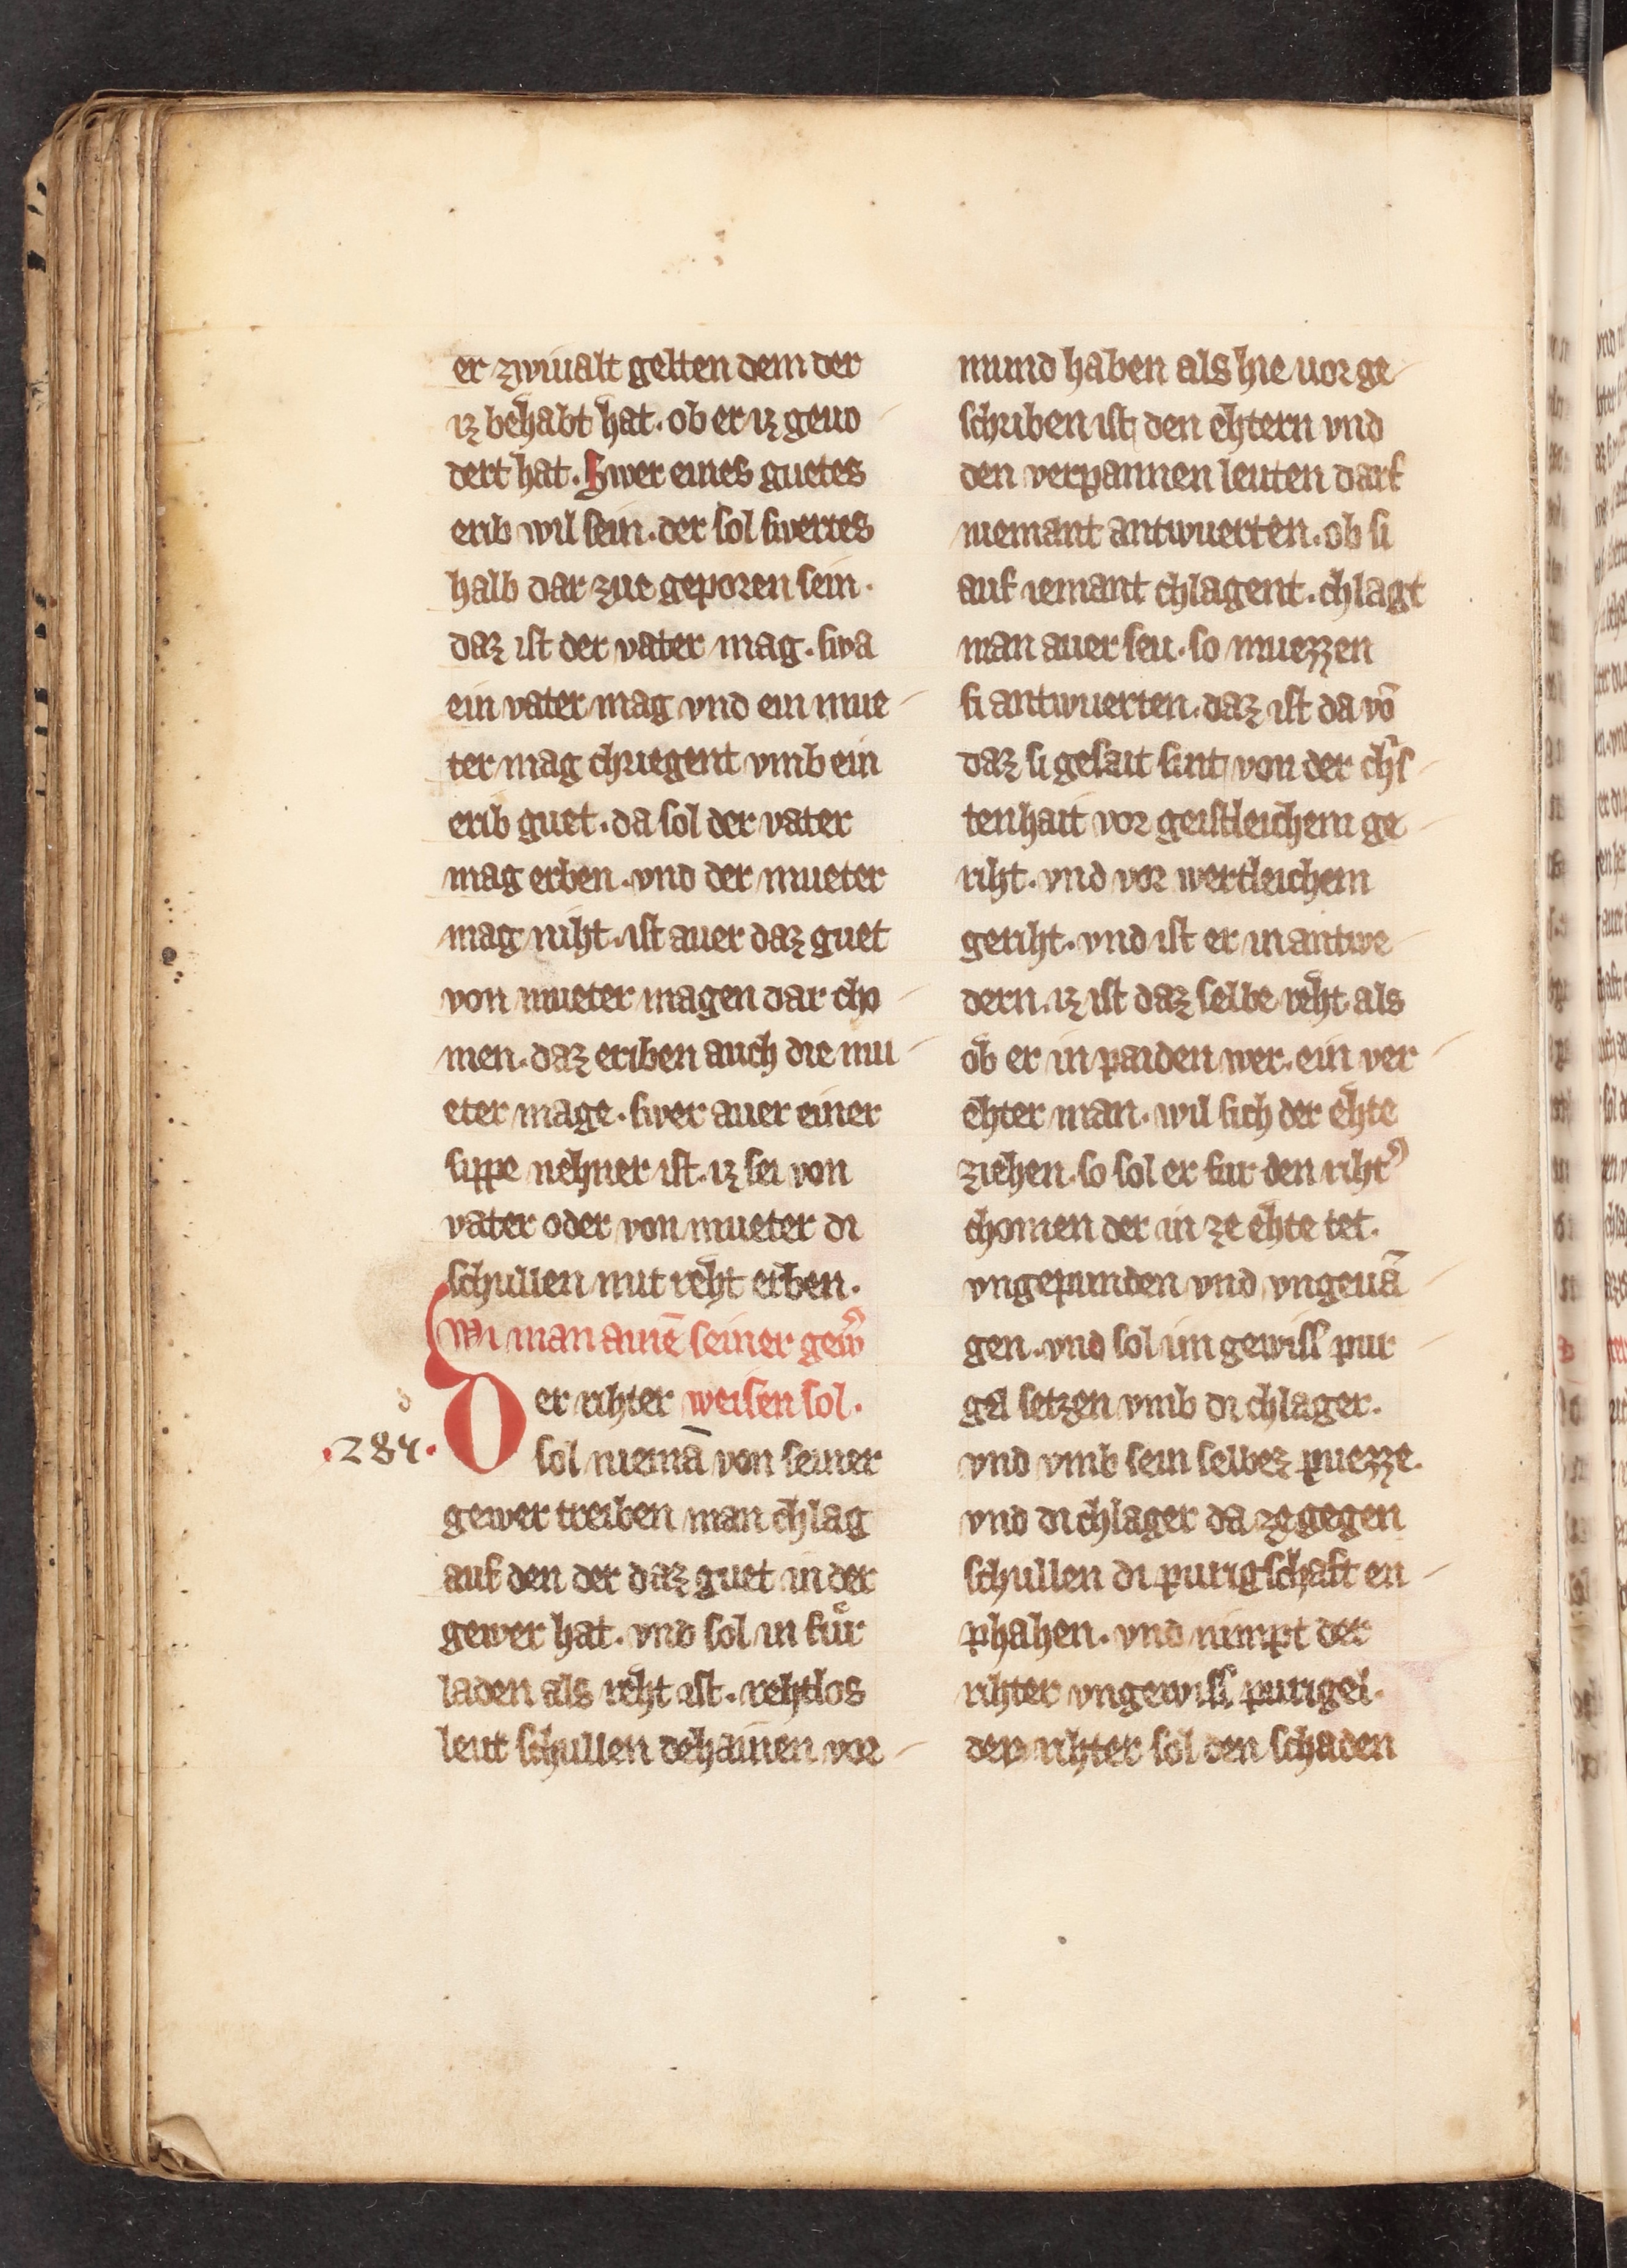 er zwiualt gelten dem der
iz behabt hat. ob er iz geuo
dert hat. Swer eines guetes
erib wil sein. der sol swertes
halb dar zue geporen sein.
daz ist der vater mag. swa
ein vater mag vnd ein mue
ter mag chriegent vmb ein
erib guet. da sol der vater
mag erben. vnd der mueter
mag niht. ist auer daz guet
von mueter magen dar cho
men. daz eriben auch die mu
eter mage. swer auer einer
sippe nehner ist. iz sei von
vater oder von mueter di
schullen mit reht erben.
Wi man ainē seiner gew̄
er rihter weisen sol.
.284. D sol niemā von seiner
gewer treiben man chlag
auf den der daz guet in der
gewer hat. vnd sol in fuͤr
laden als reht ist. rehtlos
leut schullen dehainen vor
mund haben als hie uor ge
schriben ist den ehtern vnd
den verpannen leuten darf
niemant antwuerten. ob si
auf iemant chlagent. chlagt
man auer seu. so muezzen
si antwuerten. daz ist da vō
daz si gesait sint von der chͥs
tenhait vor geistleichem ge
riht. vnd vor wertleichem
geriht. vnd ist er in antwe
dern. iz ist daz selbe reht als
ob er in paiden wer. ein ver
ehter man. wil sich der ehte
ziehen. so sol er fur den riht᾽
chomen der in ze ehte tet.
vngepunden vnd vngeuā
gen. vnd sol im gewiss pur
gel setzen vmb di chlager.
vnd vmb sein selbez puezze.
vnd di chlager da ze gegen
schullen di purigschaft en
phahen. vnd nimpt der
rihter vngewiss purigel.
der rihter sol den schaden